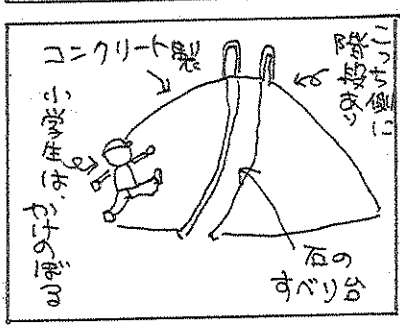 こっち側に
階段あり
コンクリート製
小学生は、かけのぼる
石の
すべり台